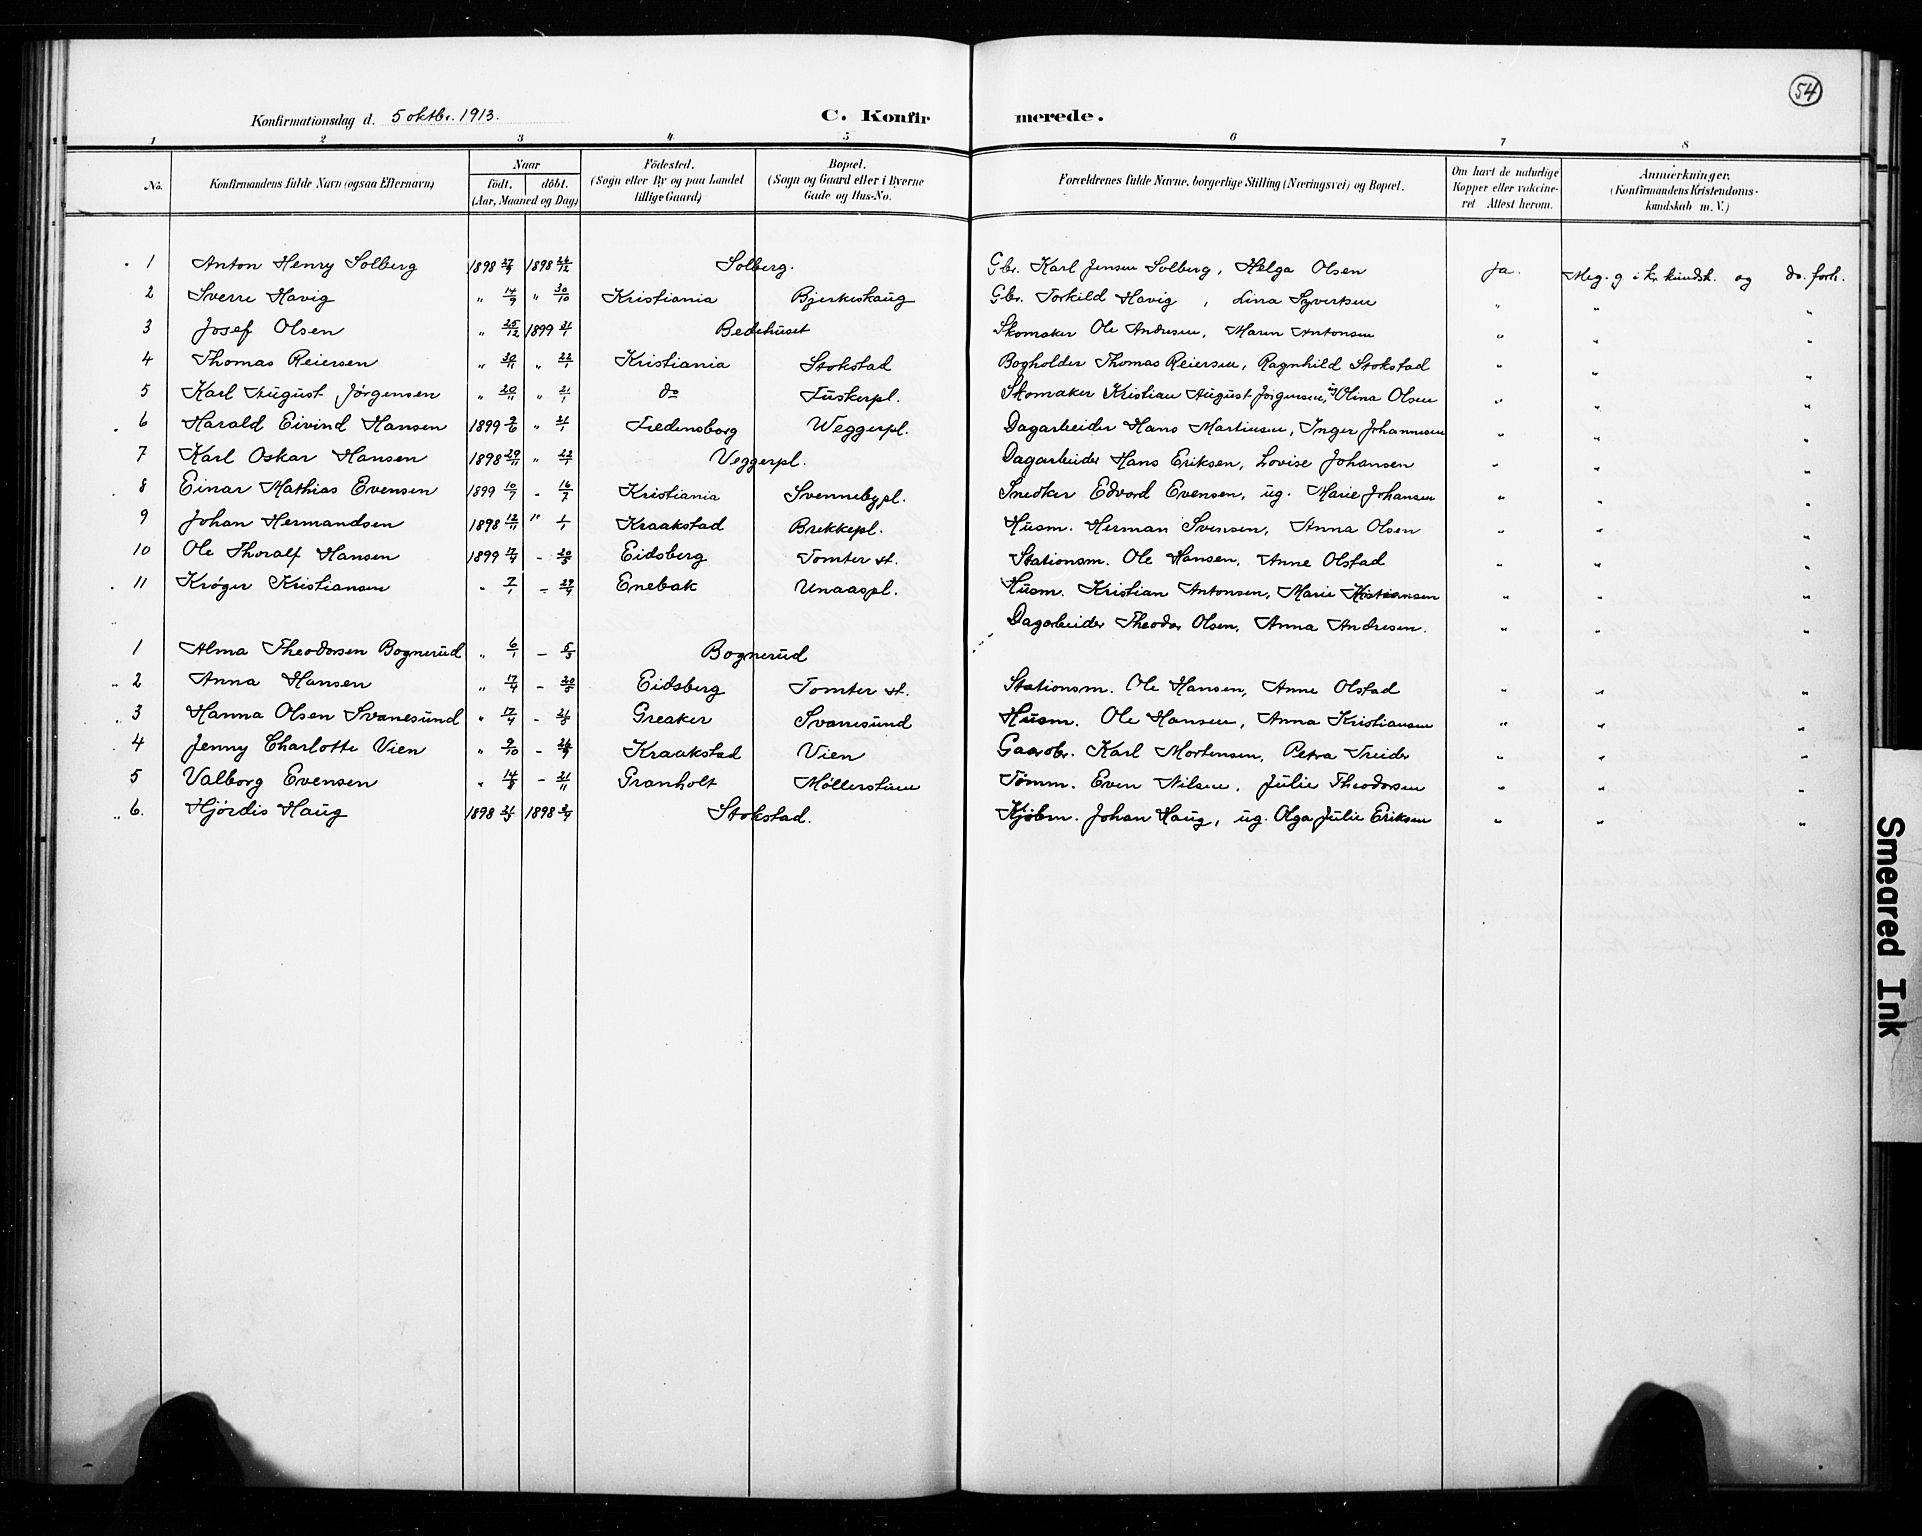 54
Konfirmationsdag d. 5 oktbr. 1913. C. Konfirmerede.
1 2 3 4 5 6 7 8
No. Konfirmandens fulde Navn (ogsaa Efternavn) Naar födt. döbt. (Aar, Maaned og Dag) Födested. (Sogn eller By og paa Landet tillige Gaard) Bopæl. (Sogn og Gaard eller i Byerne Gade og Hus-No. Forældrenes fulde Navne, borgerlige Stilling (Næringsvei) og Bopæl. Om havt de naturlige Kopper eller vakcineret Attest herom. Anmærkninger. (Konfirmandens Kristendomskundskab m. V.)
1 Anton Henry Solberg 1898 27/9 1898 26/12 Solberg. Gbr. Karl Jensen Solberg, Helga Olsen Ja. Meg. g i kr. kundsk. og do. forh.
2 Sverre Havig " 14/9 " 30/10 Kristiania Bjerkeskaug Gbr. Torkild Havig, Lina Syvertsen " " "
3 Josef Olsen " 25/12 1899 21/1 Bedehuset Skomaker Ole Andresen, Maren Antonsen " " "
4 Thomas Reiersen " 30/11 " 22/1 Kristiania Stokstad Bogholder Thomas Reiersen, Ragnhild Stokstad " " "
5 Karl August Jørgensen " 20/11 " 21/1 do Tuskerpl. Skomaker Kristian August Jørgensen, ug Olina Olsen " " "
6 Harald Eivind Hansen 1899 2/6 " 21/1 Fredensborg Weggerpl. Dagarbeider Hans Martinsen, Inger Johannesen " " "
7 Karl Oskar Hansen 1898 29/11 " 22/1 Veggerpl. Dagarbeider Hans Eriksen, Lovise Johansen " " "
8 Einar Mathias Evensen 1899 10/7 - 16/7 Kristiania Svennebypl. Snedker Edvard Evensen, ug. Marie Johansen " " "
9 Johan Hermandsen 1898 12/11 " 1/1 Kraakstad Brekkepl. Husm. Herman Svensen, Anna Olsen " " "
10 Ole Thoralf Hansen 1899 17/4 - 20/5 Eidsberg Tomter st. Stationsm. Ole Hansen, Anne Olstad " " "
11 Krøger Kristiansen " 7/1 - 29/4 Enebak Unaaspl. Husm. Kristian Antonsen, Marie Kristiansen " " "
Dagarbeider Theodor Olsen, Anna Andresen. " " "
1 Alma Theodorsen Bognerud " 6/1 - 5/3 Bognerud
2 Anna Hansen " 17/4 - 20/5 Eidsberg Tomter st. Stationsm. Ole Hansen, Anne Olstad " " "
3 Hanna Olsen Svanesund " 17/4 - 21/5 Greaker Svanesund Husm. Ole Hansen, Anna Kristiansen " " "
4 Jenny Charlotte Vien " 9/10 - Kraakstad Vien Gaardbr. Karl Mortensen, Petra Treider " " "
5 Valborg Evensen " 14/8 - 21/11 Granholt Møllerstuen Tømm. Even Nilsen, Julie Theodorsen " " "
6. Hjørdis Haug 1898 1898 Stokstad. Kjøbm. Johan Haug, ug. Olga Julie Eriksen " " "
Smeared Ink